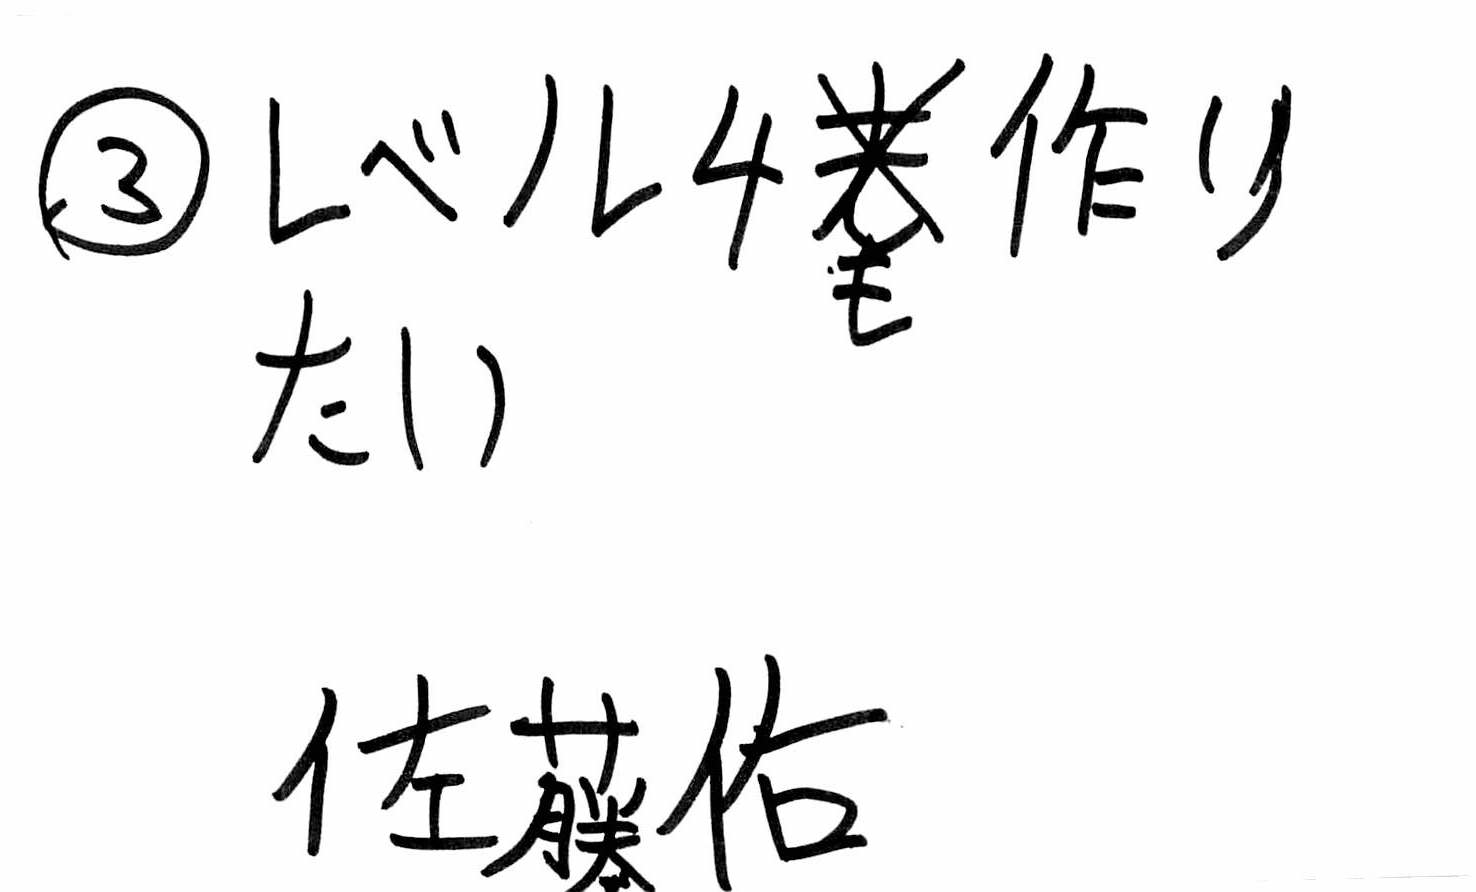 ③レベル4作り
たい
佐藤佑